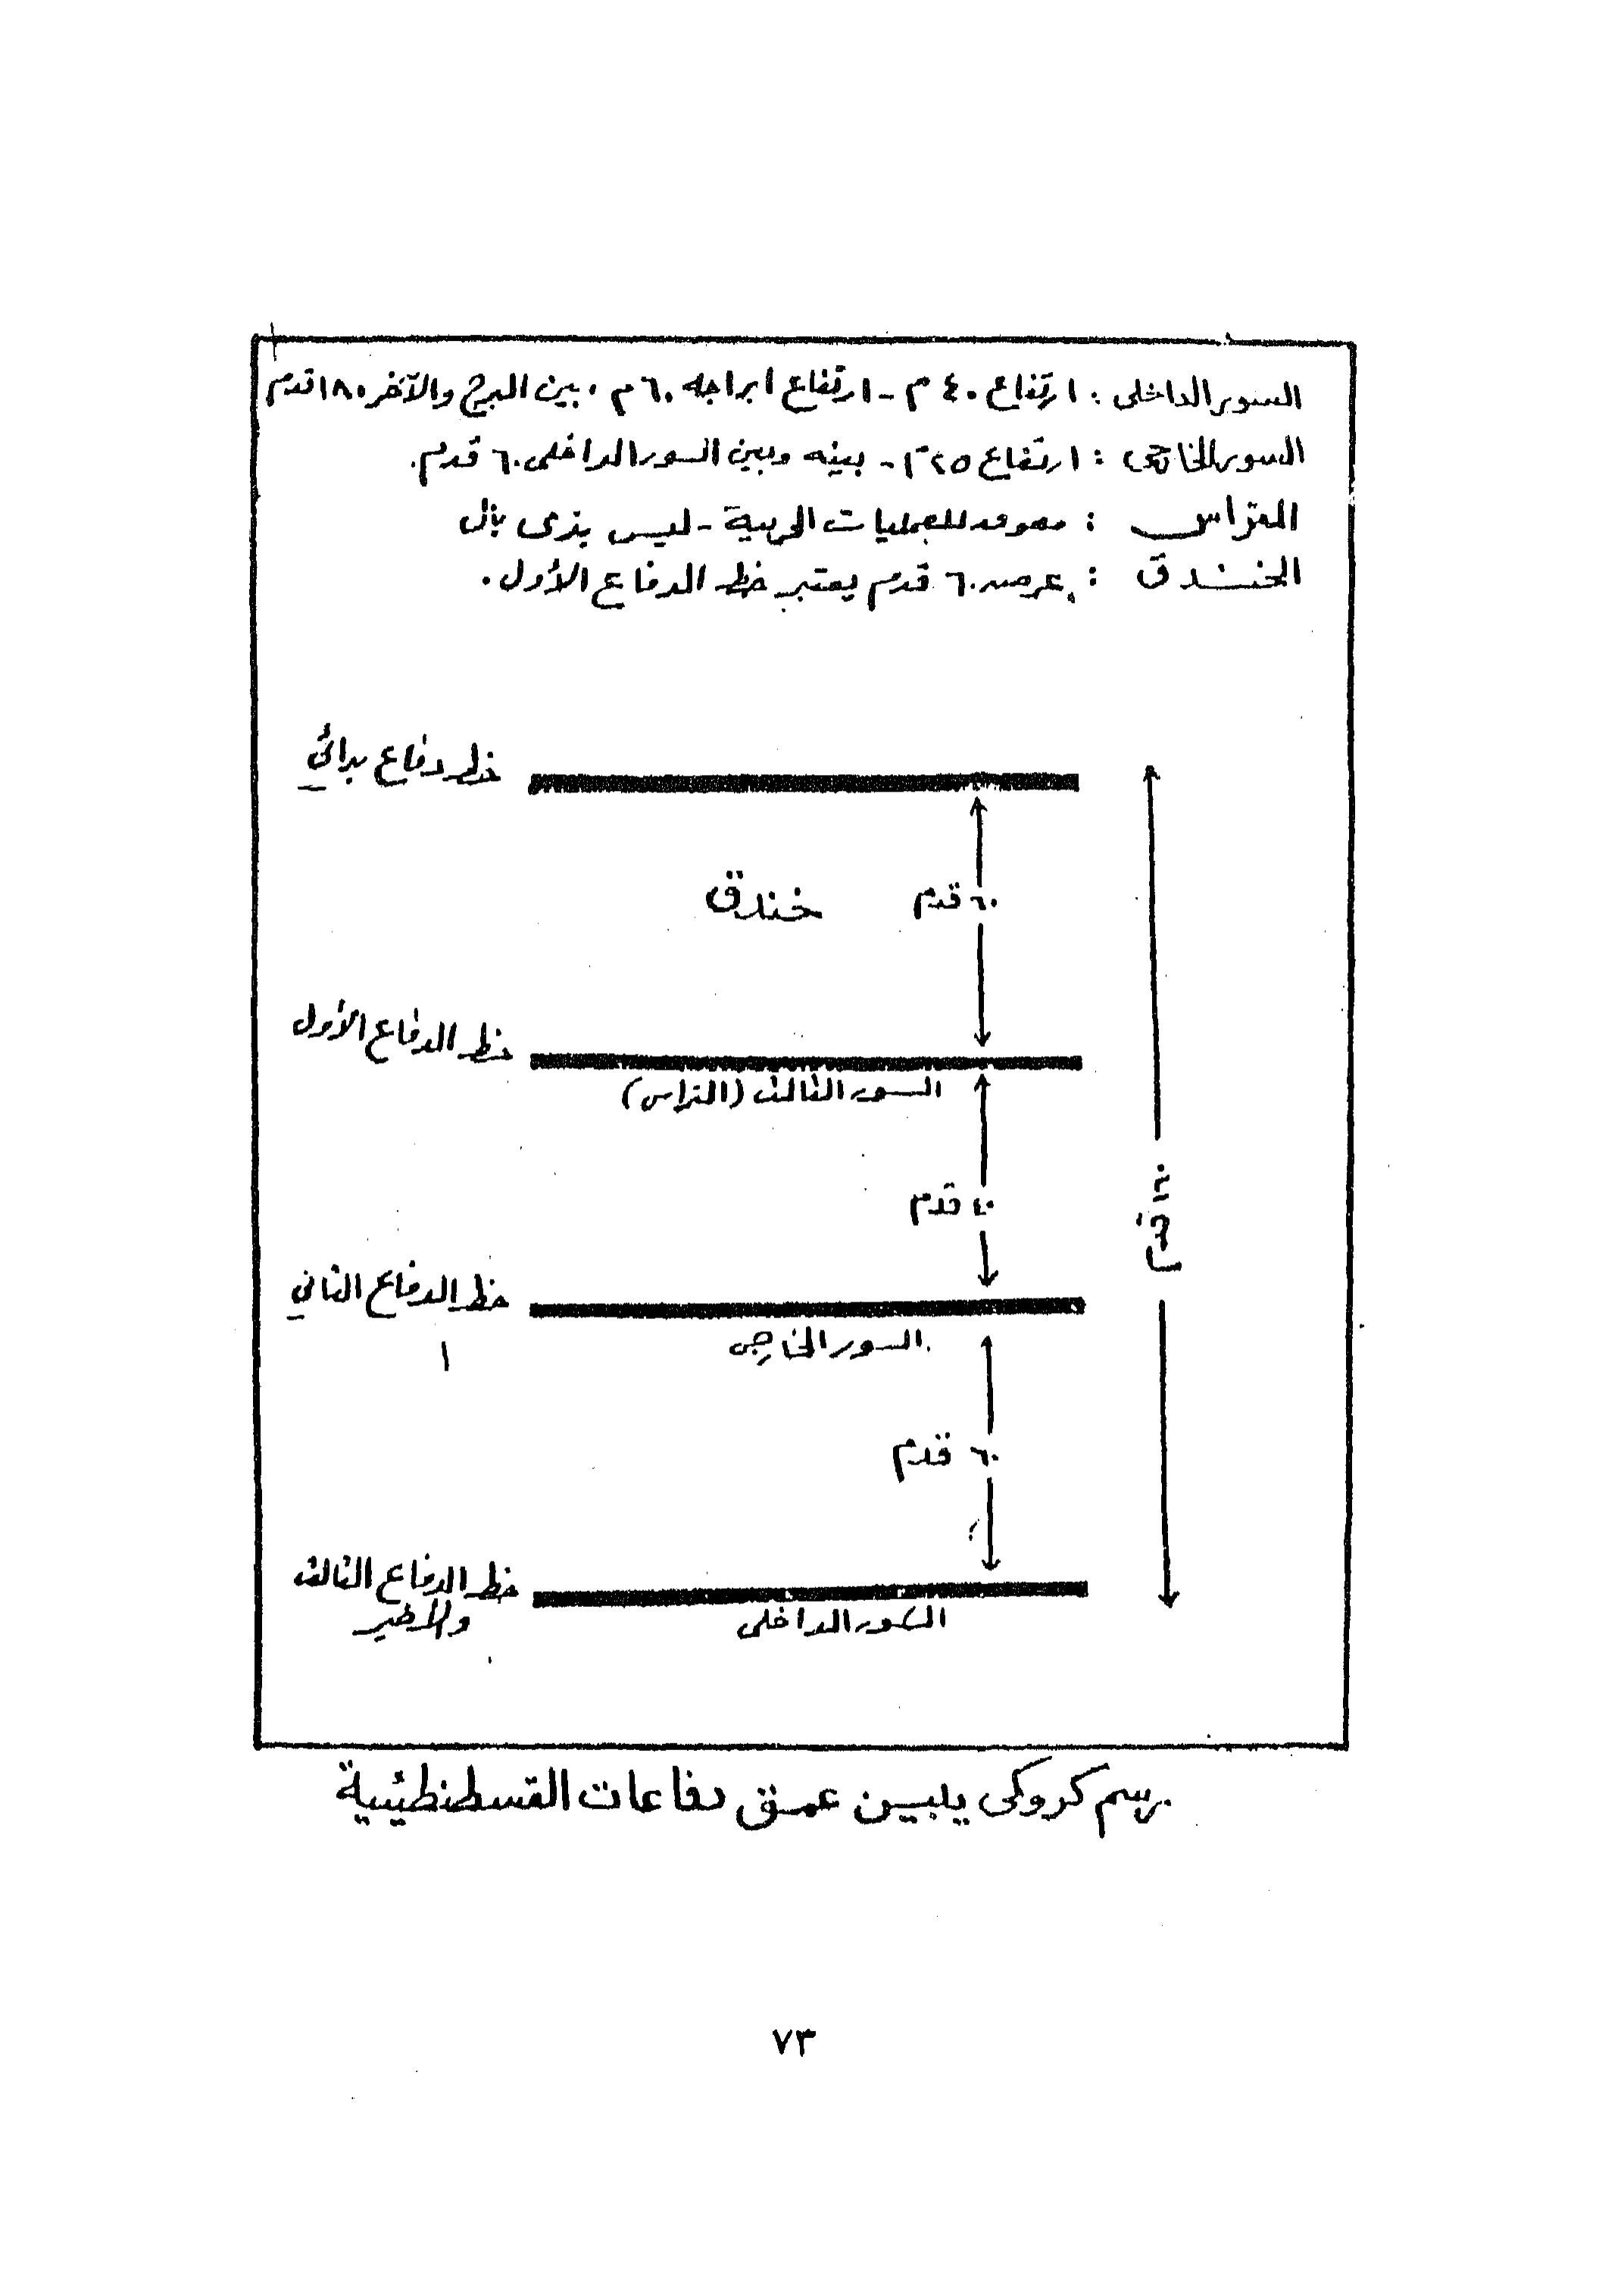 السور الداخلى : ارتفاع ٤٠ م - ارتفاع ابراجه ٦٠ م ، بين البرج والآخر ١٨٠ قدم
السور الخارجى : ارتفاع ٢٥ م - بينه وبين السور الداخلى ٦٠ قدم .
المتراس : معوق للعمليات الحربية - ليس بذى بال
الخندق : عرضه ٦٠ قدم يعتبر خط الدفاع الأول .
خط دفاع بدائي
خندق
٦٠ قدم
خط الدفاع الأول
السور الثالث (التراس)
٤٠ قدم
١٦٠ قدم
خط الدفاع الثاني
السور الخارجى
٦٠ قدم
خط الدفاع الثالث
والأخير
السور الداخلى
رسم كروكى يبين عمق دفاعات القسطنطينية
٧٣